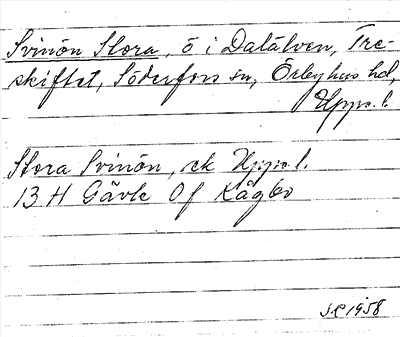 Svinön Stora, ö i Dalälven, Tre-
skiftet, Söderfors sn, Örbyhus hd,
Upps. l.
Stora Svinön, ek Upps. l.
13 H Gävle 0f Kågbo
1958